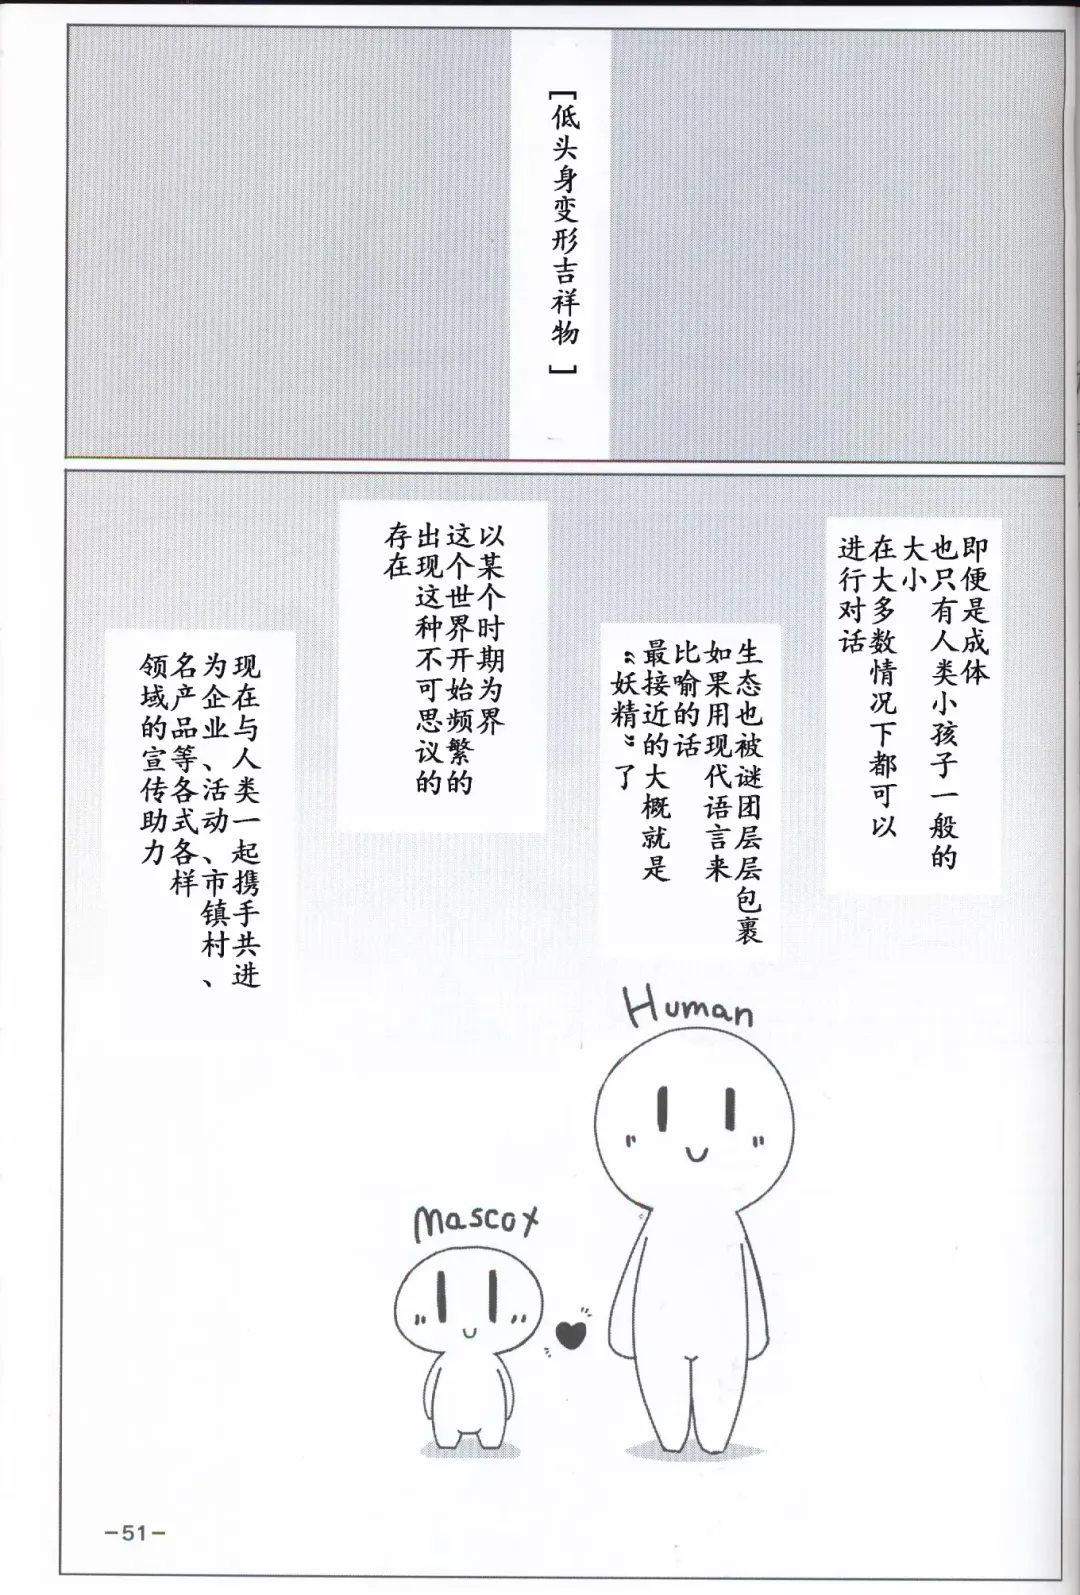 [低头身变形吉祥物]
即便是成体
也只有人类小孩子一般的
大小
在大多数情况下都可以
进行对话
生态也被谜团层层包裹
如果用现代语言来
比喻的话
最接近的大概就是
“妖精”了
以某个时期为界
这个世界开始频繁的
出现这种不可思议的
存在
现在与人类一起携手共进
为企业、活动、市镇村、
名产品等各式各样
领域的宣传助力
Human
Mascot
-51-